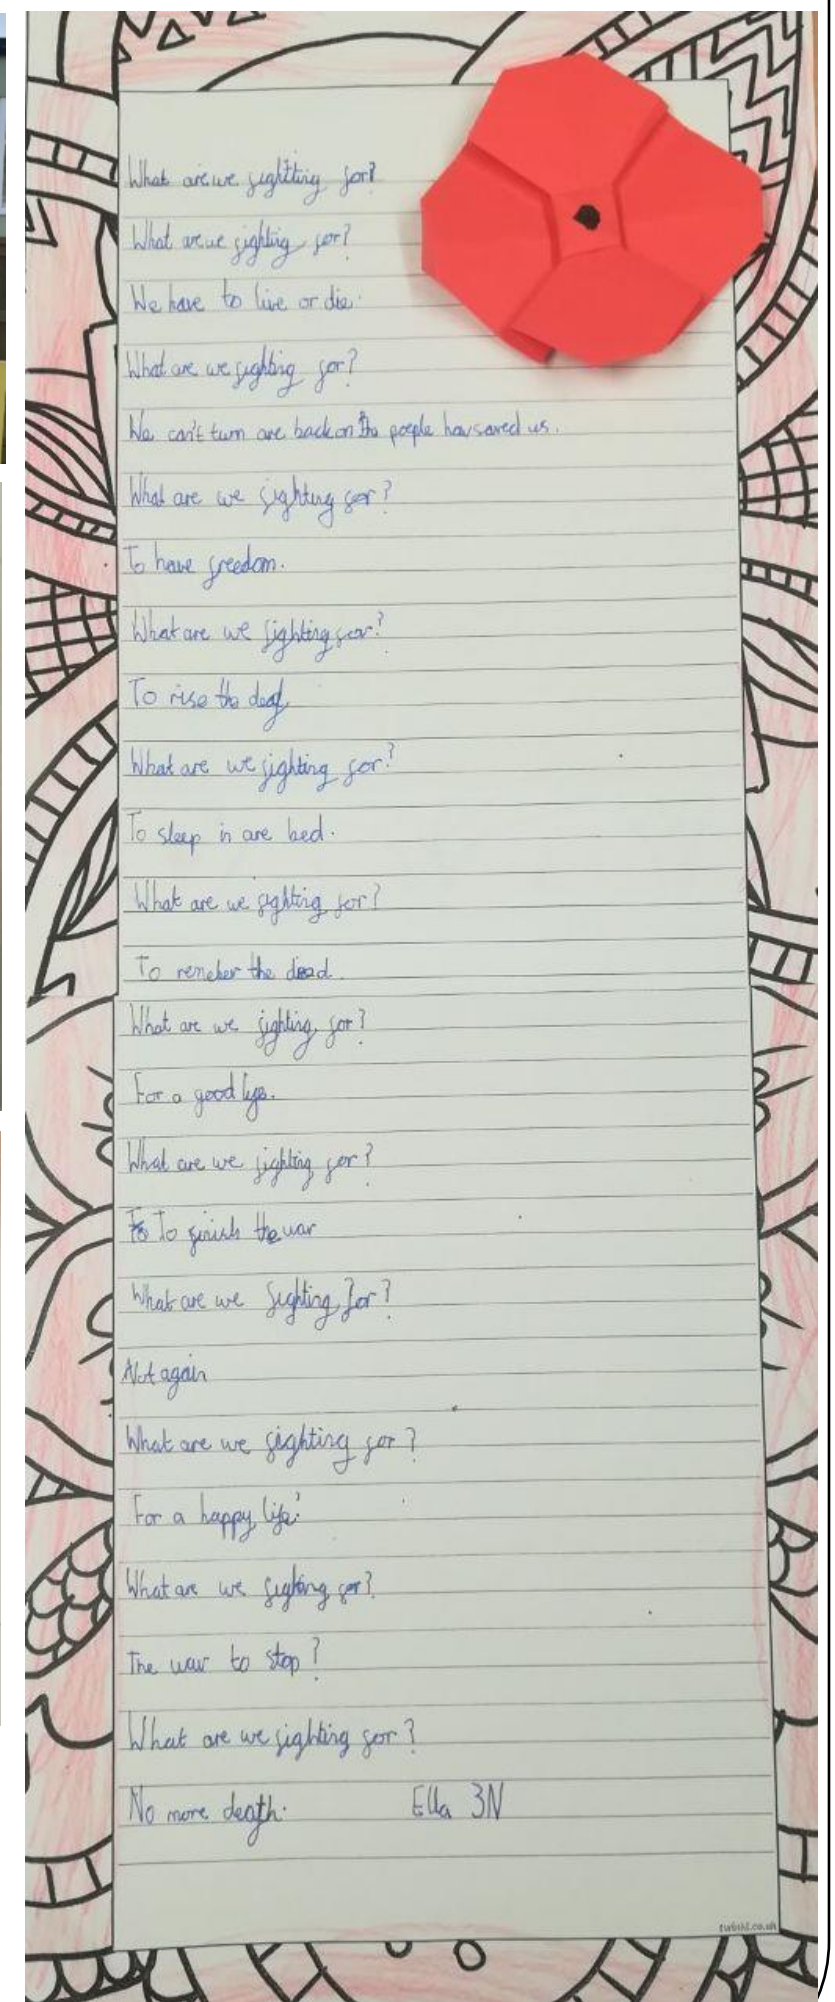 What are we fightting for?
What are we fighting for?
We have to live or die.
What are we fighting for?
We can't turn are back on the poeple how saved us.
What are we fighting for?
To have freedom.
What are we fighting for?
To rise the deaf
What are we fighting for?
To sleep in are bed.
What are we fighting for?
To remeber the dead.
What are we fighting for?
For a good lyfe.
What are we fighting for?
To finish the war
What are we fighting for?
Not again
What are we fighting for?
For a happy life.
What are we fighting for?
The war to stop?
What are we fighting for?
No more death. Ella 3N
twinkl.co.uk